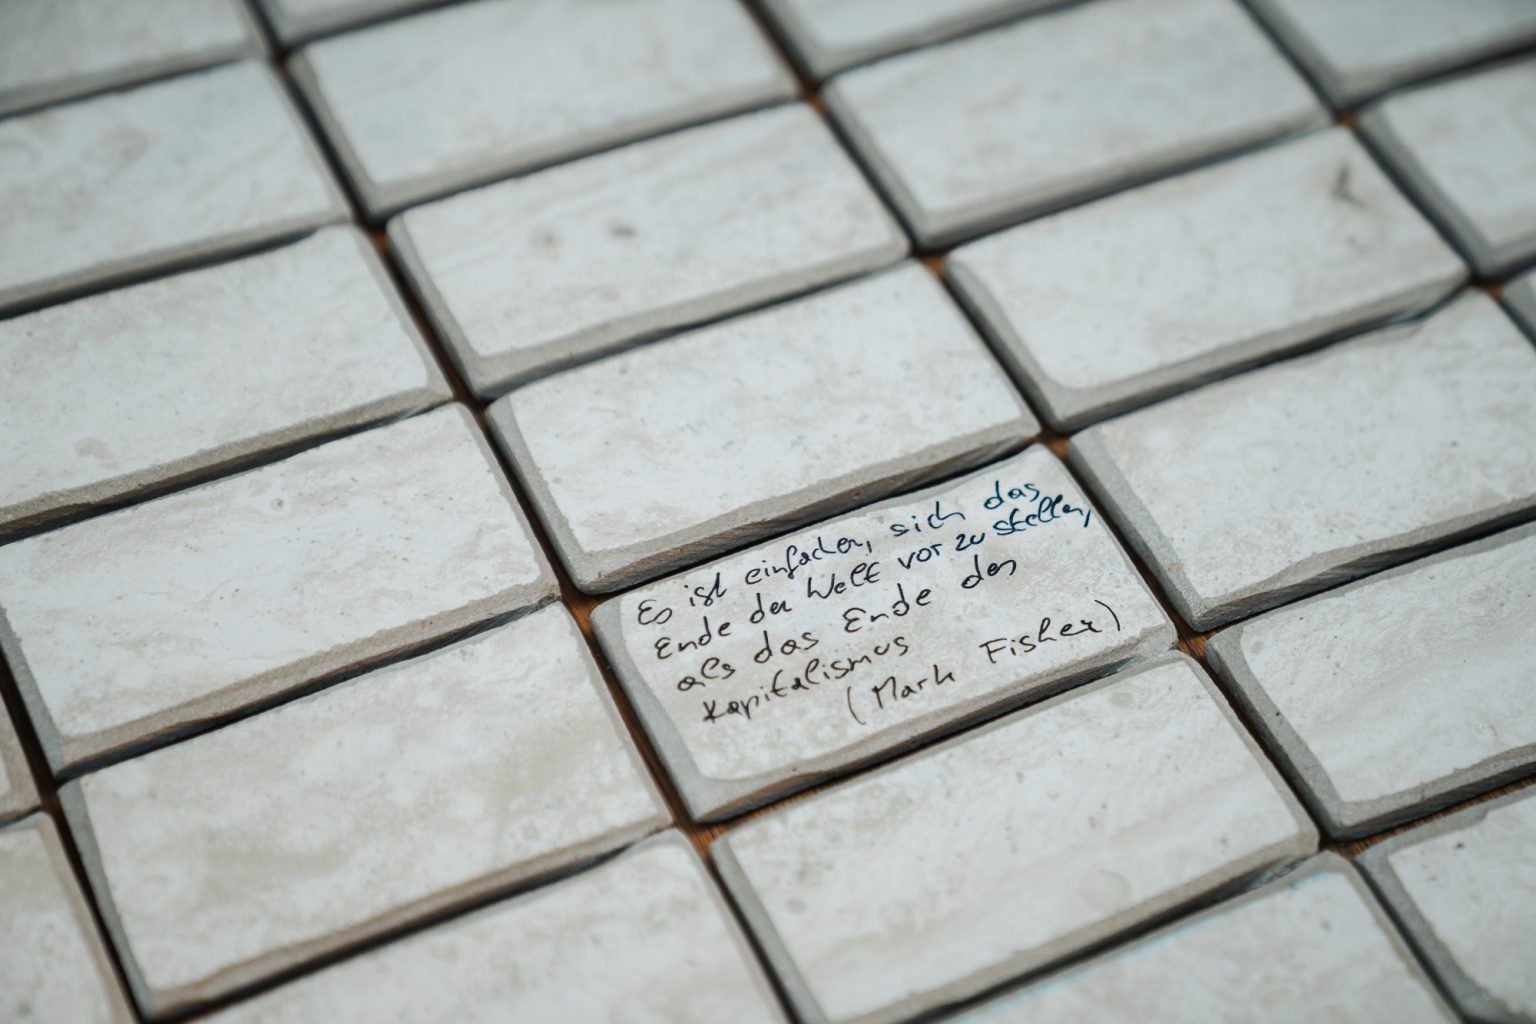 Es ist einfacher, sich das
Ende der Welt vorzustellen,
als das Ende des
Kapitalismus
(Mark Fisher)